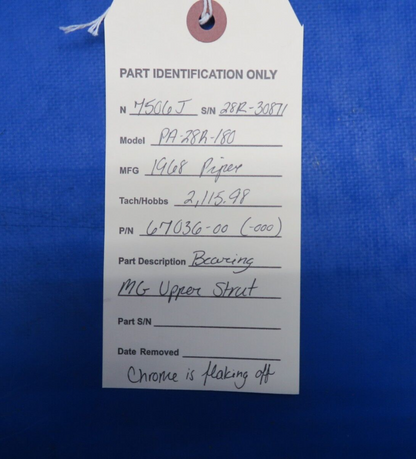 PART IDENTIFICATION ONLY
N 7506J S/N 28R-30871
Model PA-28R-180
MFG 1968 Piper
Tach/Hobbs 2,115.98
P/N 67036-00 (-000)
Part Description Bearing
MG Upper Strut
Part S/N
Date Removed
Chrome is flaking off